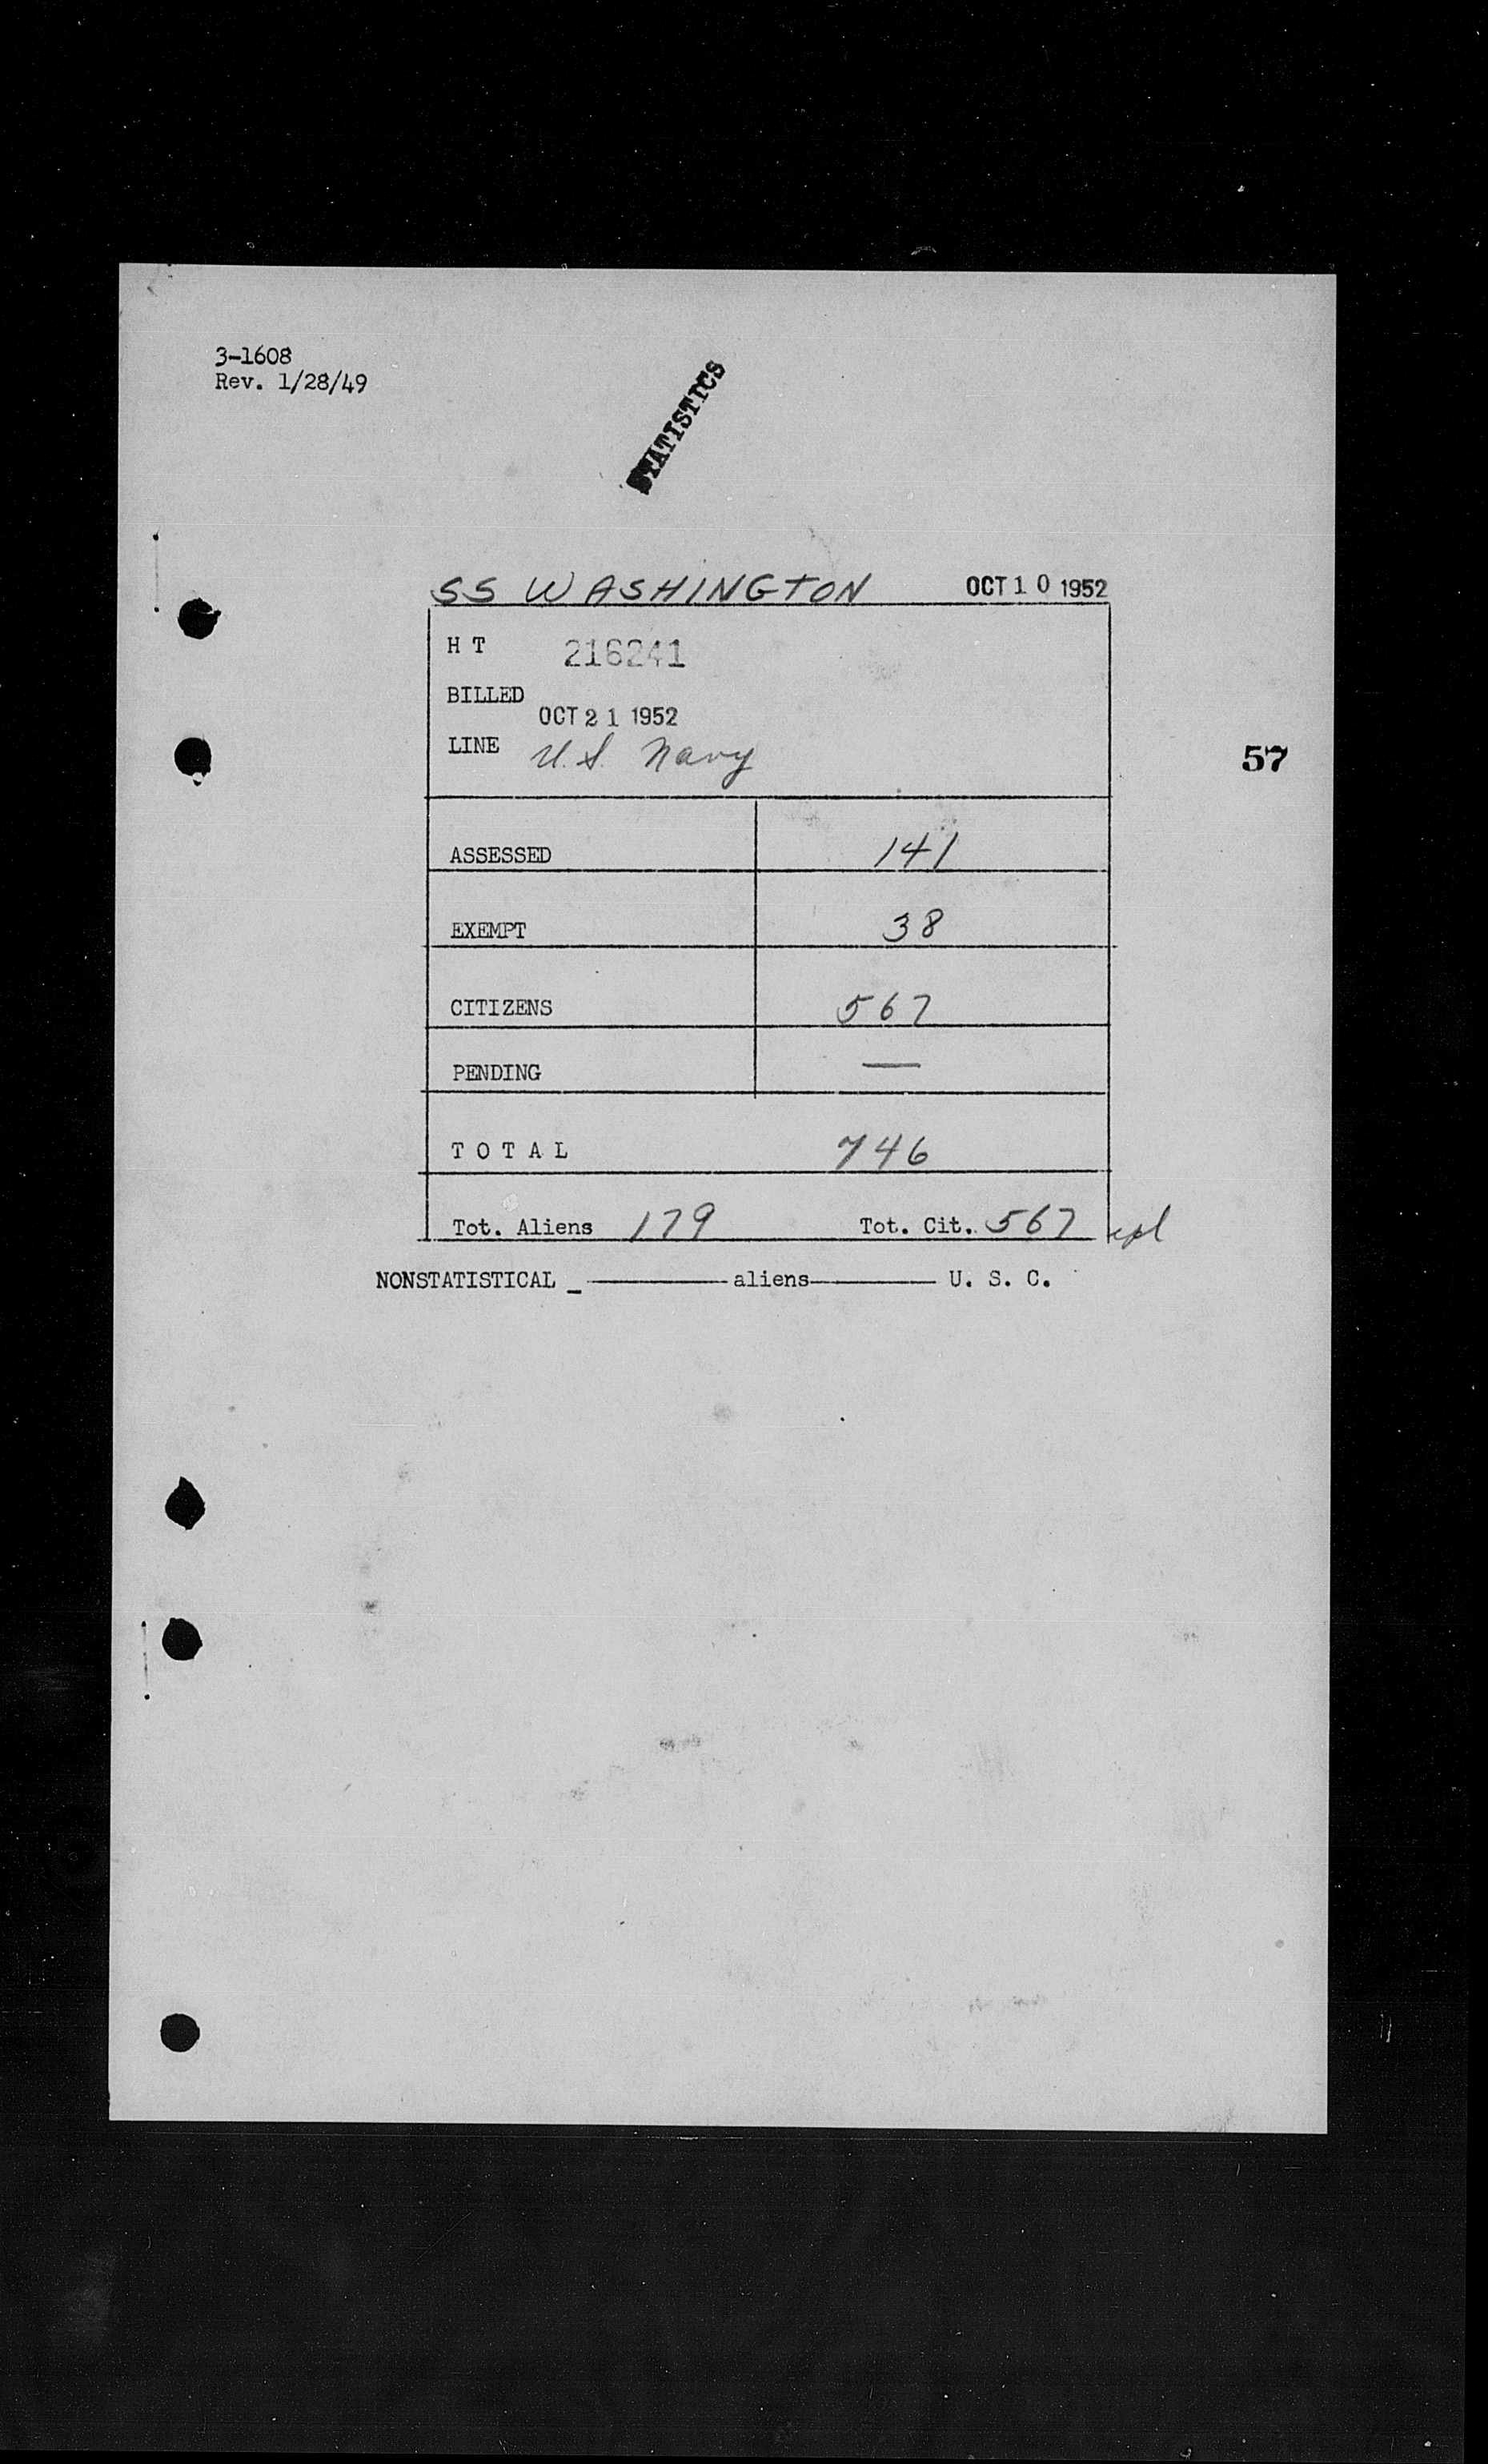 3-1608
Rev. 1/28/49
STATISTICS
SS WASHINGTON OCT 10 1952
H T 216241
BILLED
OCT 21 1952
LINE U.S. Navy
57
ASSESSED 141
EXEMPT 38
CITIZENS 567
PENDING —
T O T A L 746
Tot. Aliens 179 Tot. Cit. 567
NONSTATISTICAL _ ———— aliens ———— U. S. C.